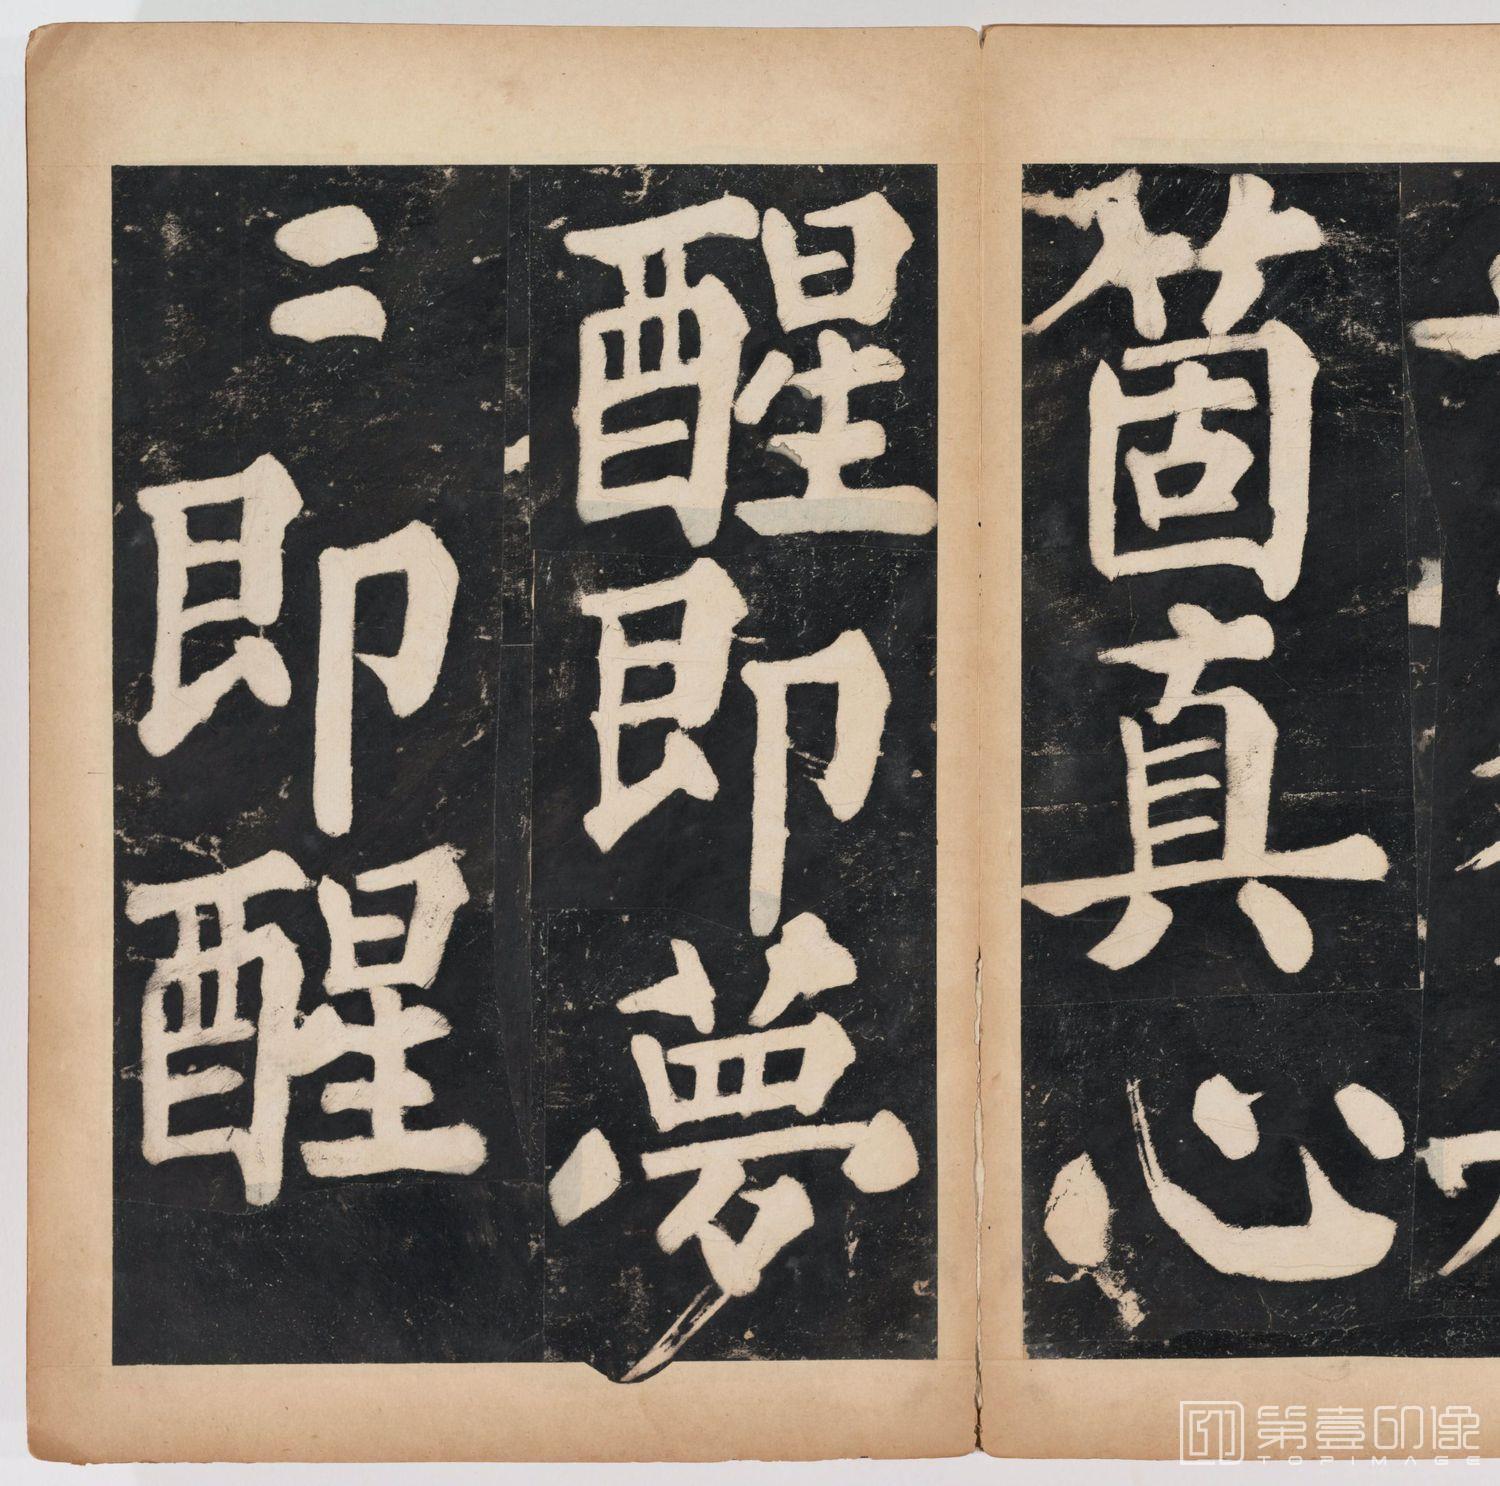 箇真心
醒即夢
〻即醒
第壹印像
TOPIMAGE